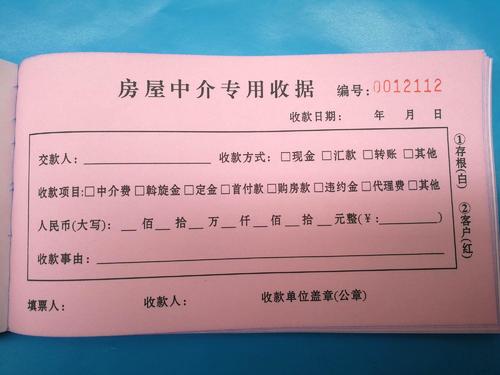 房屋中介专用收据 编号:0012112
收款日期: 年 月 日
交款人: 收款方式: □现金 □汇款 □转账 □其他
收款项目:□中介费 □斡旋金 □定金 □首付款 □购房款 □违约金 □代理费 □其他
人民币(大写): __佰__拾__万__仟__佰__拾__元整(¥:________)
收款事由:
填票人: 收款人: 收款单位盖章(公章)
①存根(白)
②客户(红)